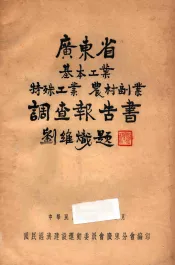 廣東省
基本工業
特殊工業 農村副業
調查報告書
劉維熾題
中華民
國民經濟建設運動委員會廣東分會編印